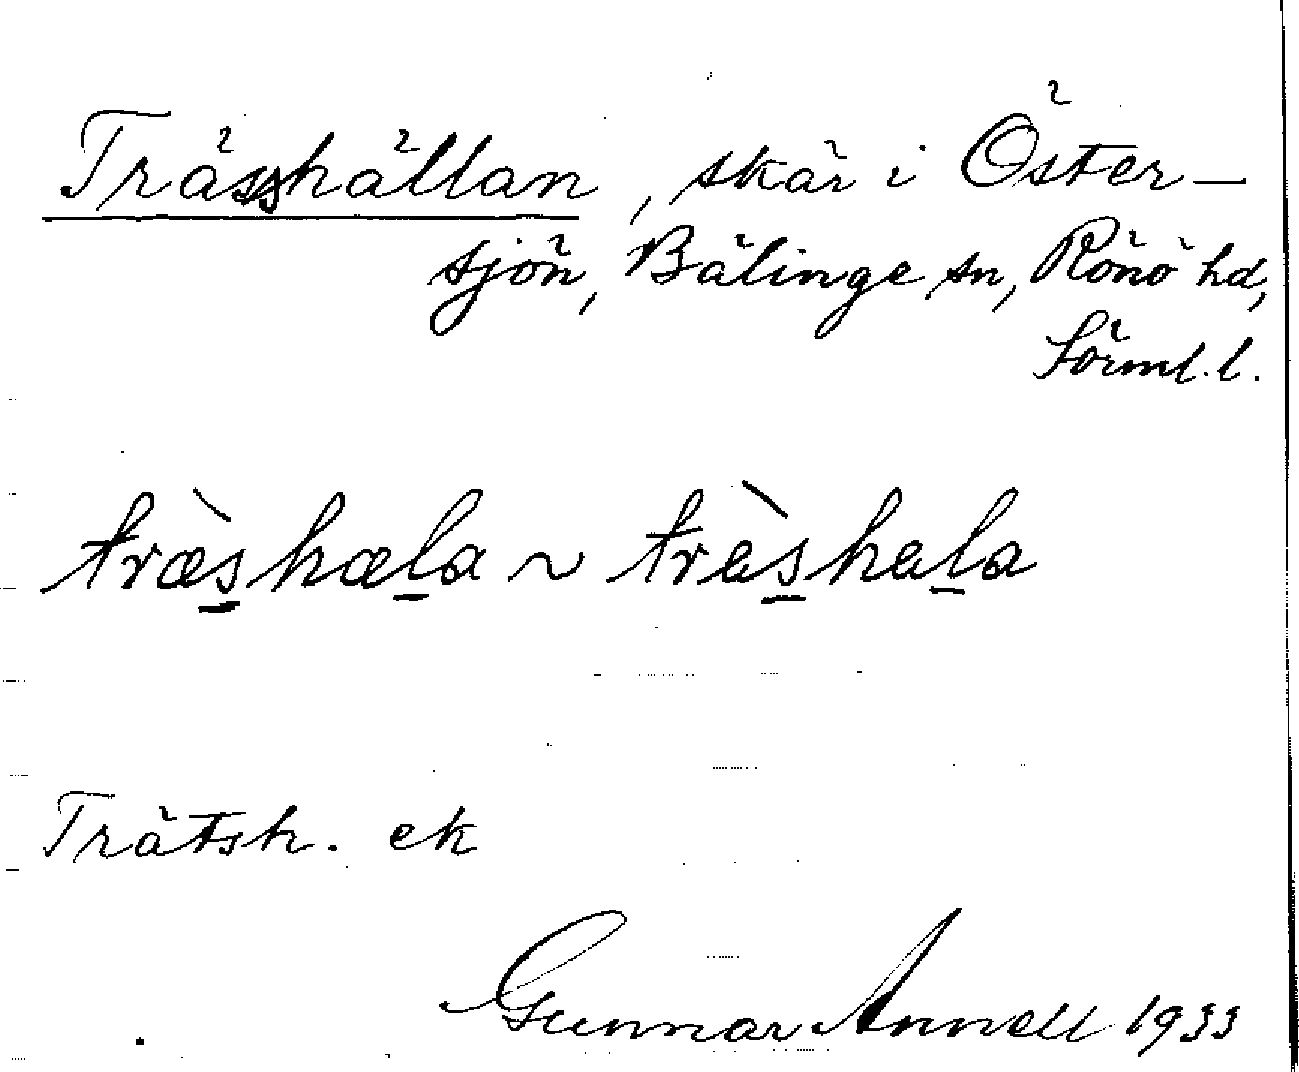 Trässhällan, skär i Öster-
sjön, Bälinge sn, Rönö hd,
Sörml. l.
træ̀s̲hæl̲a ~ très̲hel̲a
Trätsh. ek
Gunnar Annell 1933